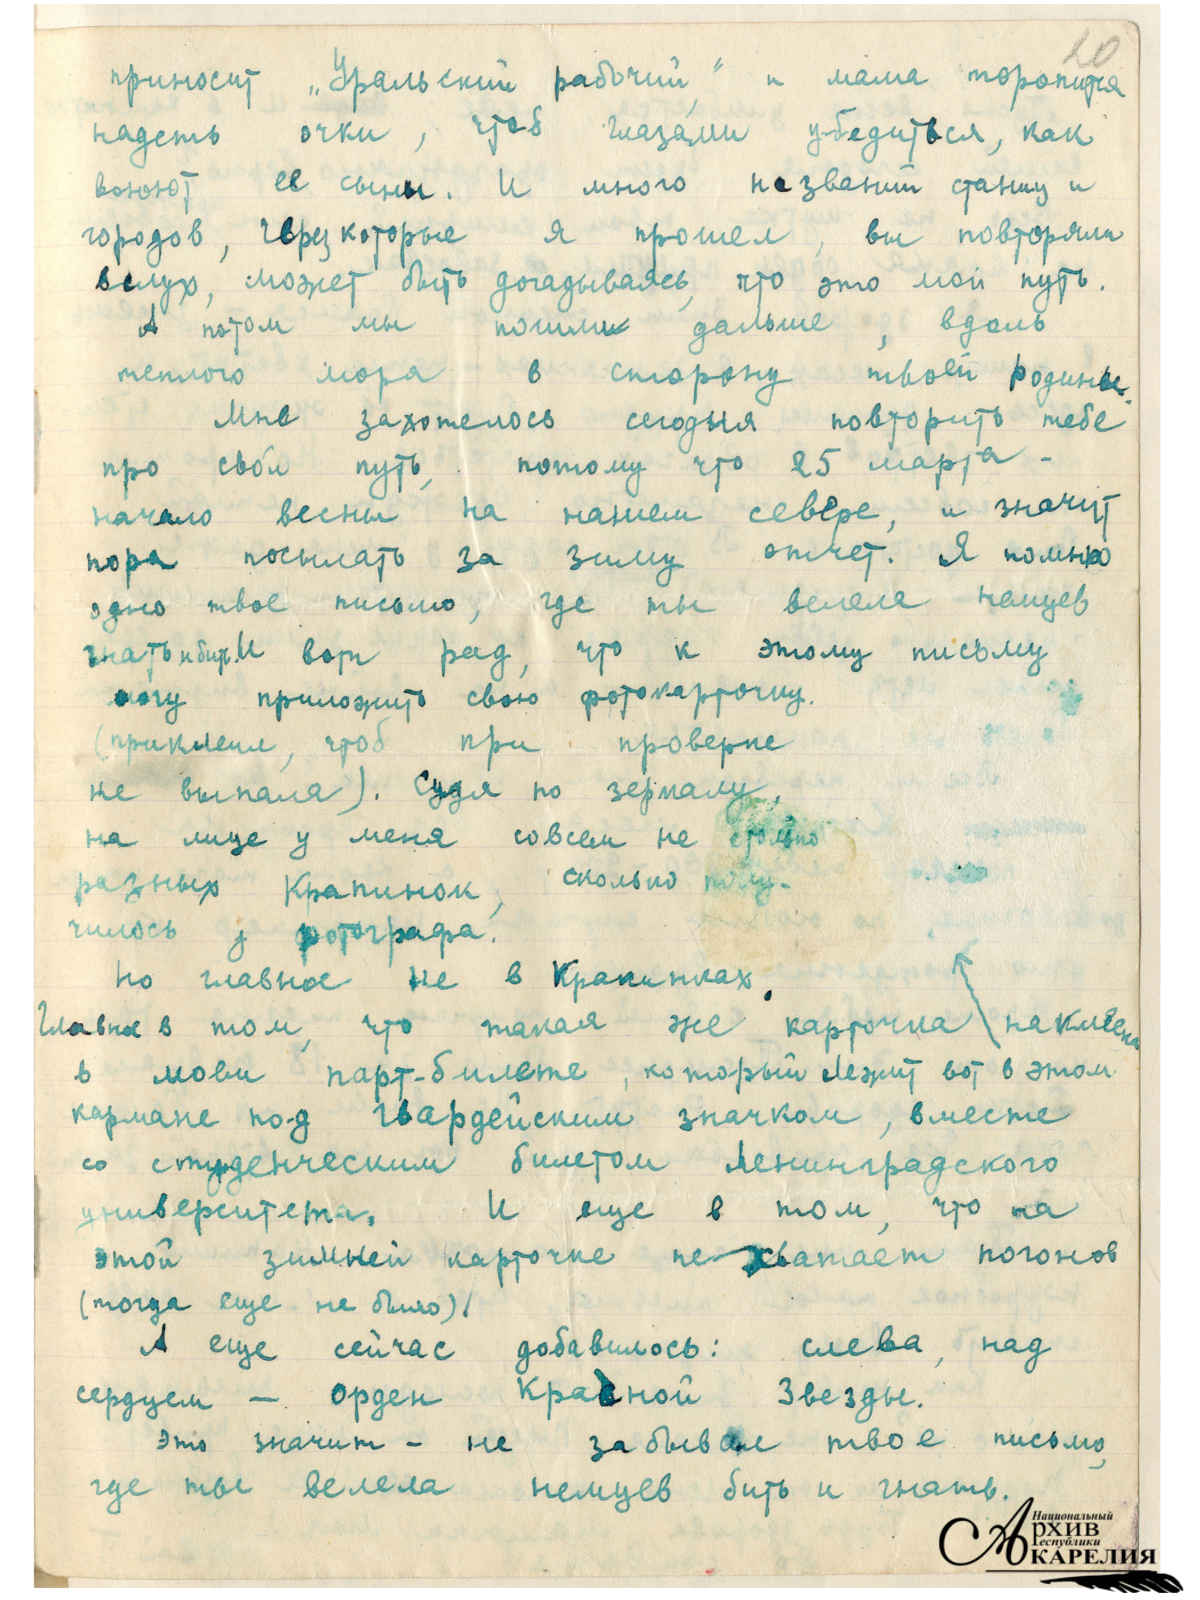 20
приносит „Уральский рабочий," и мама торопится
надеть очки, чтоб глазами убедиться, как
воюют ее сыны. И много названий станиц и
городов, через которые я прошел, вы повторяли
вслух, может быть догадываясь, что это мой путь.
А потом мы пошли дальше, вдоль
теплого моря в сторону твоей родины.
Мне захотелось сегодня повторить тебе
про свой путь, потому что 25 марта -
начало весны на нашем севере, и значит
пора посылать за зиму отчет. Я помню
одно твое письмо, где ты велела немцев
гнать и бить. И вот рад, что к этому письму
могу приложить свою фотокарточку.
(приклеил, чтоб при проверке
не выпала). Судя по зеркалу,
на лице у меня совсем не столько
разных крапинок, сколько полу-
чилось у фотографа.
Но главное не в крапинках.
Главное в том, что такая же карточка наклеена
в моем парт-билете, который лежит вот в этом
кармане под гвардейским значком, вместе
со студенческим билетом Ленинградского
университета. И еще в том, что на
этой зимней карточке не хватает погонов
(тогда еще не было)!
А еще сейчас добавилось: слева, над
сердцем — орден Красной Звезды.
Это значит - не забывал твое письмо,
где ты велела немцев бить и гнать.
Национальный
Архив
Республики
Карелия